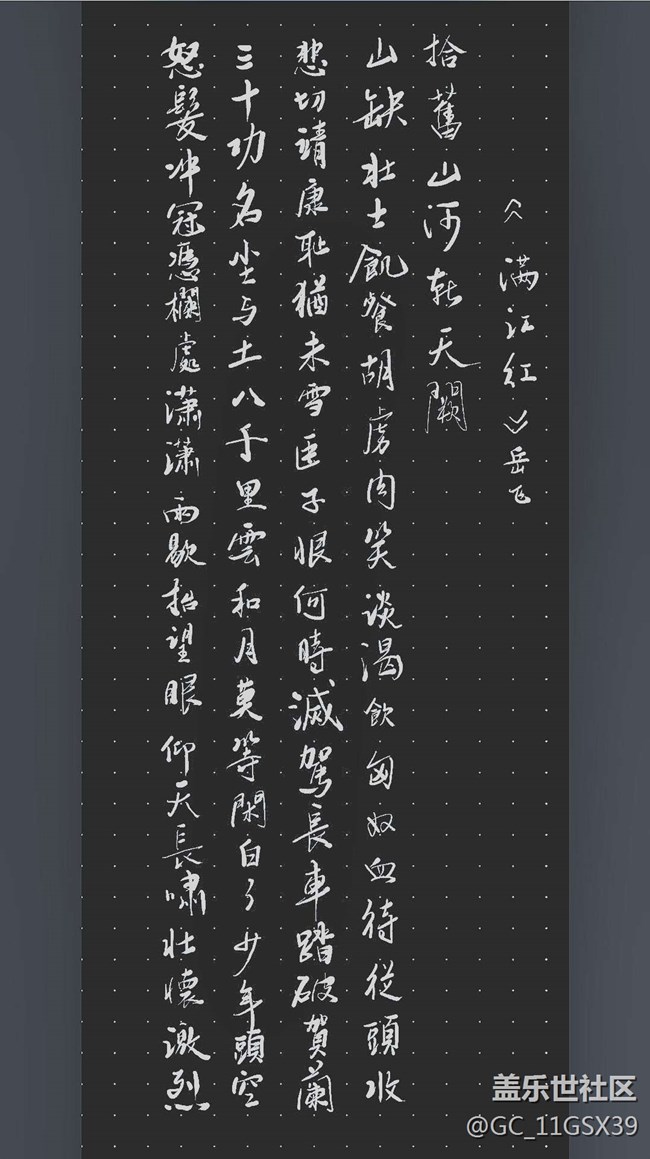 怒髮冲冠憑欄處瀟瀟雨歇抬望眼仰天長嘯壮懷激烈
三十功名尘与土八千里雲和月莫等閑白了少年頭空
悲切靖康耻猶未雪臣子恨何時滅駕長車踏破賀蘭
山缺壮士飢餐胡虏肉笑谈渴飲匈奴血待從頭收
拾舊山河朝天闕
《满江红》岳飞
盖乐世社区
@GC_11GSX39